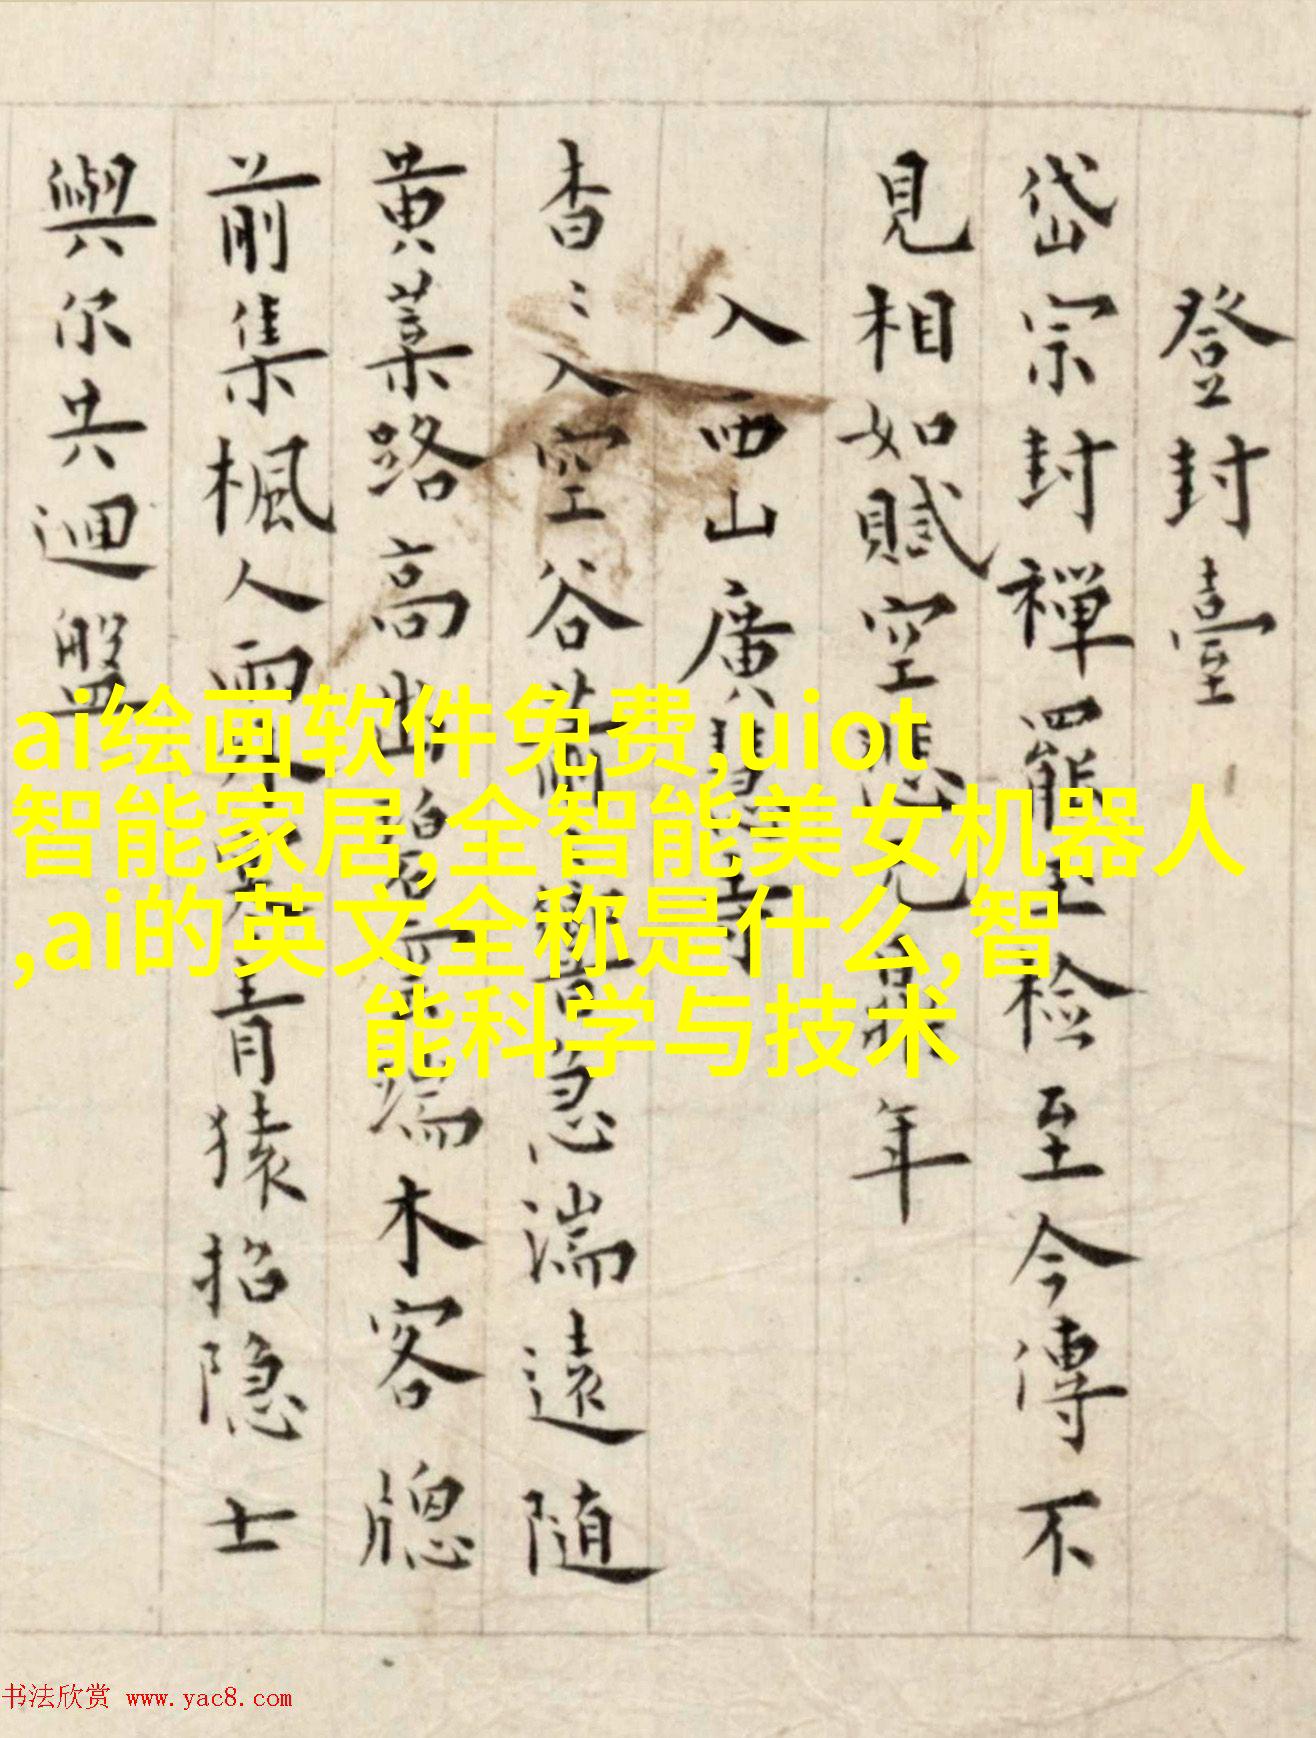 登封臺
岱宗封禪罷玉檢至今傳不
見相如賦空悲年
入西山廣慧寺
杳〻入空谷急湍遠隨
黄葉路高出端木客牕
前集楓人青猿招隐士
與尔共迴盤
ai绘画软件免费,uiot
智能家居,全智能美女机器人
,ai的英文全称是什么,智
能科学与技术
书法欣赏 www.yac8.com